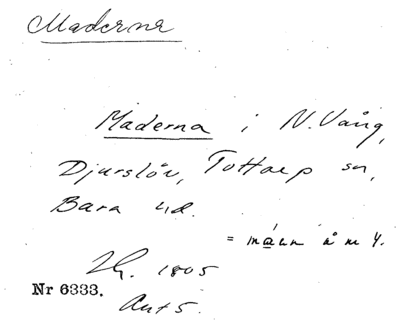 Maderne
Maderna i N. Vång,
Djurslöv, Tottarp sn,
Bara hd.
1805
Nr 6333.
Akt 5.